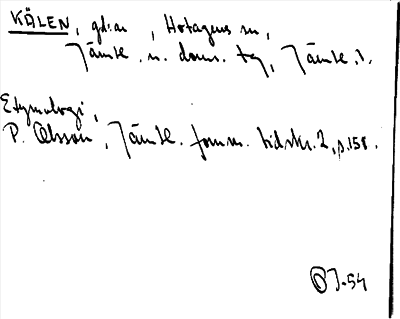 KÄLEN, gd:ar, Hotagens sn,
Jämtl. n. doms. tg, Jämtl. l.
Etymologi,
P. Olsson, Jämtl. fornm. tidskr. 2, p. 158.
OJ-54